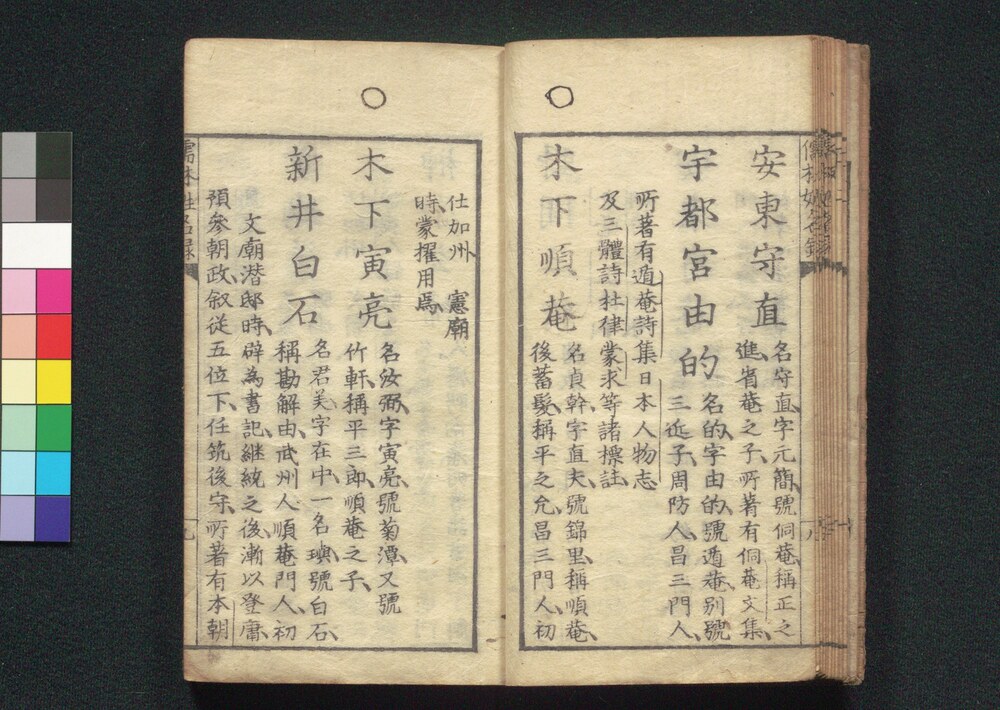 儒林姓名録
安東守直
名守直字元簡號侗菴稱正之
進省菴之子所著有侗菴文集
宇都宮由的
名的字由的號遁菴別號
三近子周防人昌三門人
所著有遁菴詩集日本人物志
及三體詩杜律蒙求等諸標註
木下順菴
名貞幹字直夫號錦里稱順菴
後蓄髮稱平之允昌三門人初
仕加州 憲廟
時蒙擢用焉
木下寅亮
名汝弼字寅亮號菊潭又號
竹軒稱平三郎順菴之子
新井白石
名君美字在中一名璵號白石
稱勘解由武州人順菴門人初
文廟潛邸時辟為書記継統之後漸以登庸
預參朝政叙從五位下任筑後守所著有本朝
儒林姓名録
九